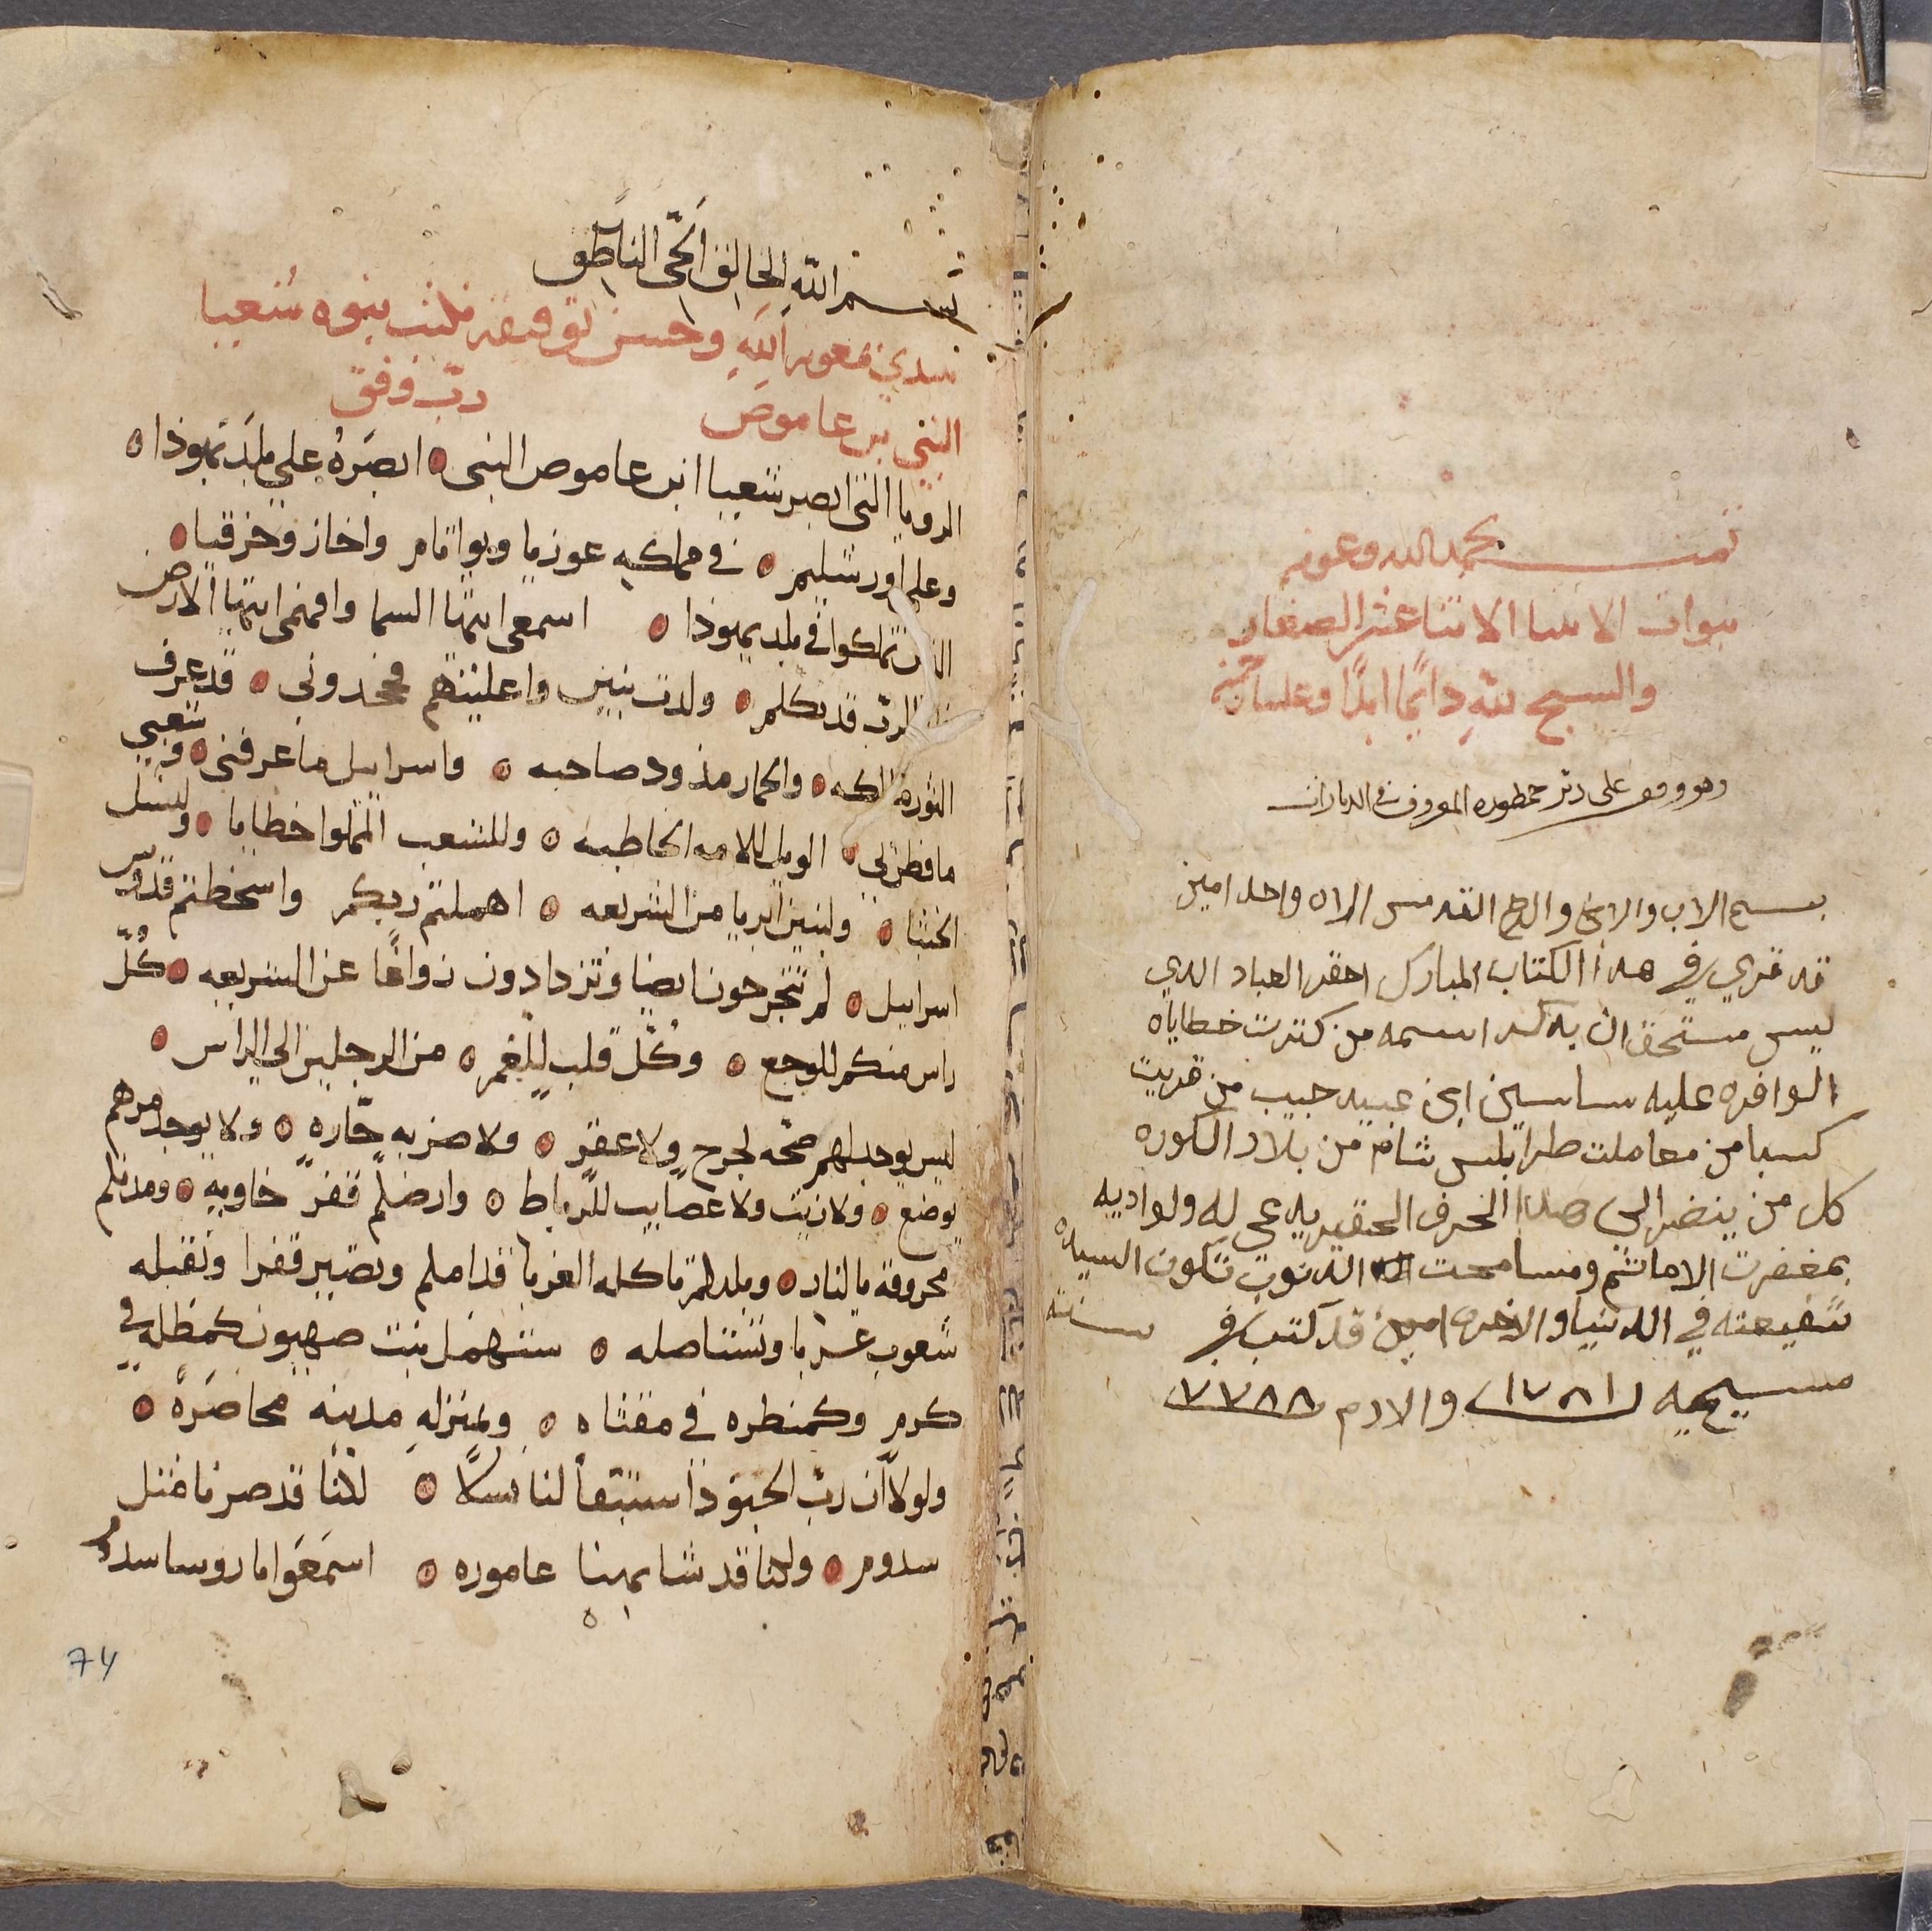 تمت بحمد الله وعونه
نبوات الانبيا الاثنا عشر الصغار
والسبح لله دايمًا ابدًا وعلينا رحمته
وهو وقف على دير حمطوره المعروف في الديارات
بسم الاب والابن والروح القدس الاله واحد امين
قد قري في هذا الكتاب المبارك احقر العباد الذي
ليس مستحق ان يذكر اسمه من كترت خطاياه
الوافره عليه ساسين ابن عبيد حبيب من قريت
كسبا من معاملت طرابلس شام من بلاد الكوره
كل من ينضر الى هذا الخرف الحقير يدعي له ولواديه
بمغفرت الاماثم ومسامحت الدنوب تكون السيده
شفيعته في الدنيا والاخره امين قد كتب في سنة
مسيحيه ١٧٨١ والادم ٧٧٨٨
بسم الله الخالق الحي الناطق
نبتدي بمعونه الله وحسن توفيقه نكتب نبوه شعيا
النبي بن عاموص رب وفق
الرويا التي ابصر شعيا ابن عاموص النبي ابصره على بلد يهوذا
وعلى اورشليم في مملكه عوزيا ويواثام واخاز وخزقيا
الذين تملكوا في بلد يهوذا اسمعي ايتها السما وافهمي ايتها الارض
الرب قد تكلم ولدت بنين واعليتهم فجحدوني قد عرف
الثور مالكه والحمار مذود صاحبه واسراييل ما عرفني وشعبي
ما فطن لي الويل للامه الخاطيه وللشعب الممتلوا خطايا ولنسل
الخبثا ولبنين ابريا من الشريعه اهملتم ربكم واسخطتم قدوس
اسراييل لم تنجرحون ايضا وتزدادون زواغًا عن الشريعه كلّ
راس منكم للوجع وكلّ قلب للغم من الرجلين الى الراس
ليس يوجد لهم صحه لجرح ولا عقر ولا ضربه حاره ولا يوجد مرهم
يوضع ولا زيت ولا عصاييب للرباط وارضكم قفر خاويه ومدنكم
محروقة بالنار وبلدكم تاكله الغربا قدامكم وتصير قفرا وتقبله
شعوب غربا وتستاصله ستهمل بنت صهيون كمظله في
كرم وكمنطره في مقثاه وبمنزله مدينه محاصره
ولولا ان رب الجنود استبقا لنا نسلًا لكنا قد صرنا مثل
سدوم ولكنا قد شابهنا عاموره اسمعوا يا روسا سدوم
74